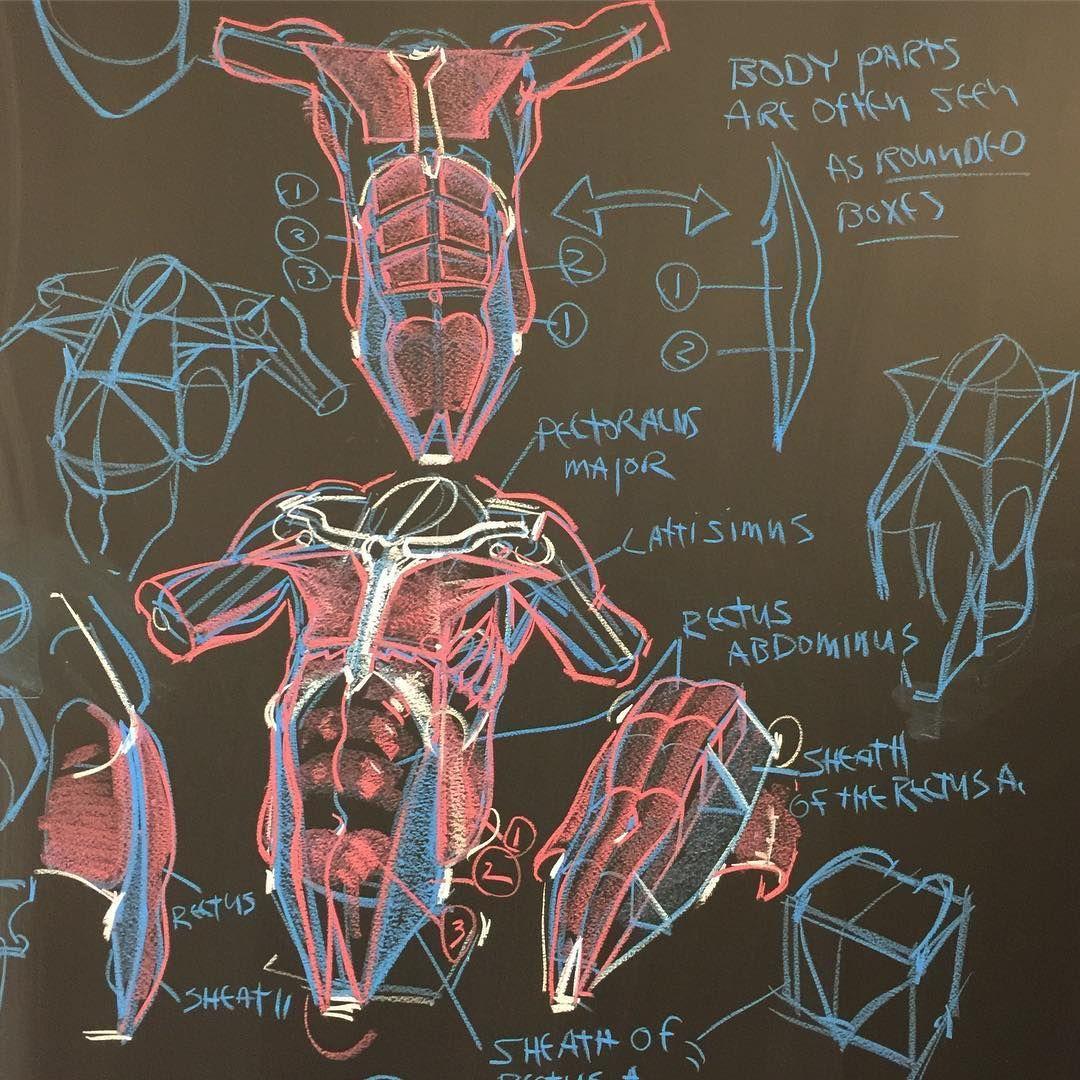 BODY PARTS
ARE OFTEN SEEN
AS ROUNDED
BOXES
1
2
3
2
1
1
2
PECTORALUS
MAJOR
LATTISIMUS
RECTUS
ABDOMINUS
SHEATH
OF THE RECTUS A.
1
2
3
RECTUS
SHEATH
SHEATH OF
RECTUS A